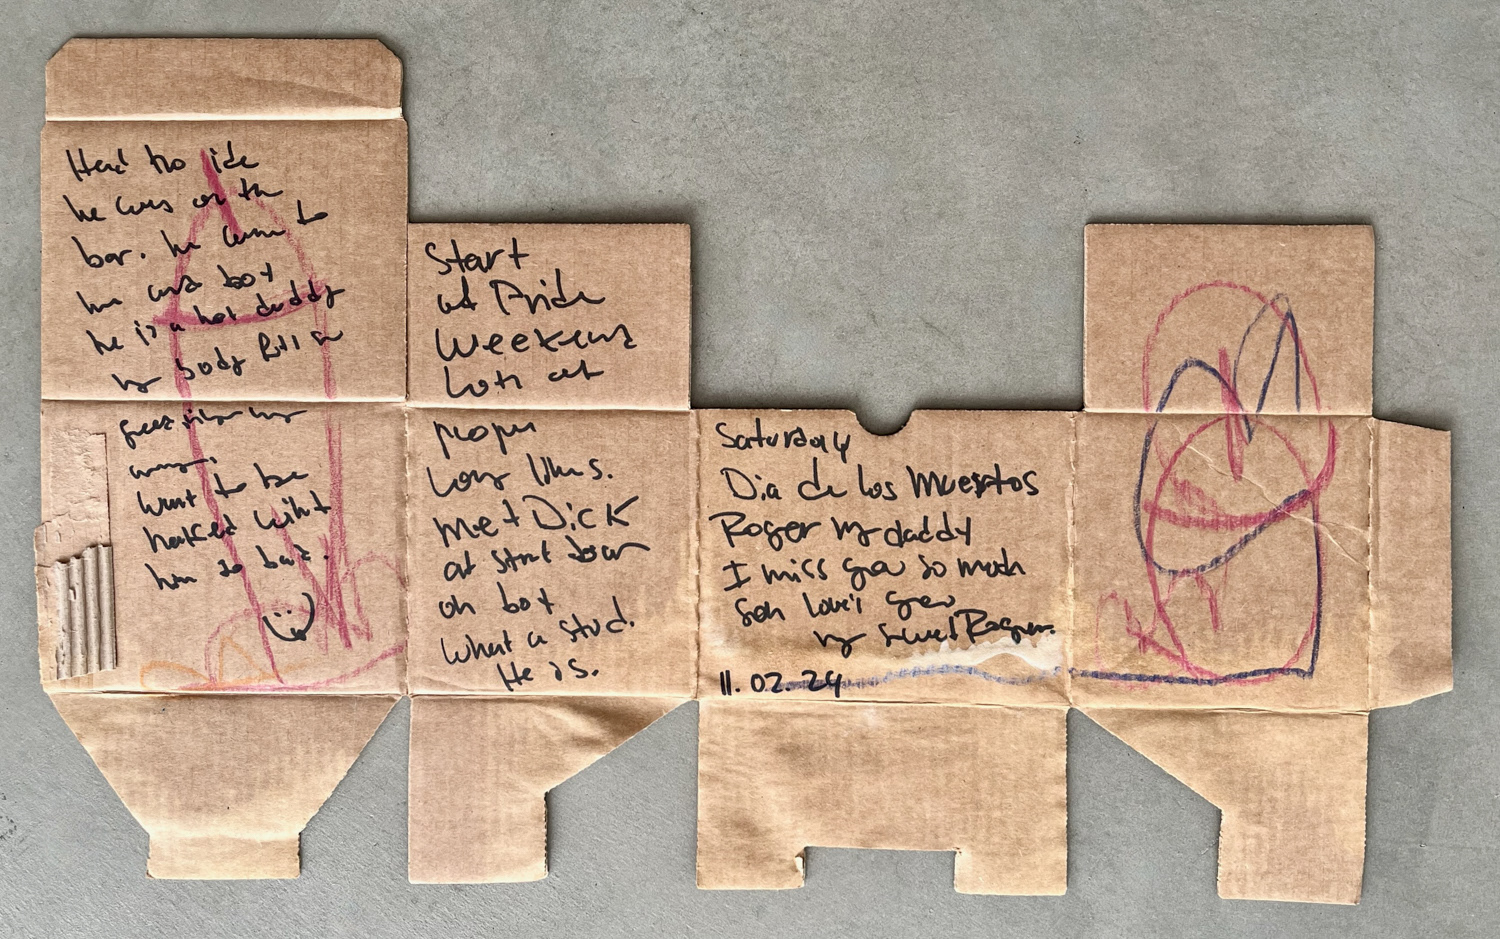 Had no ide
he was on the
bar. he came to
me and bot
he is a hot daddy
my body full in
my
want to be
naked wiht
him so bad.
Start
at Pride
Weekend
Lots of
people
Long lines.
met Dick
at Street
on bot
what a stud.
He is.
Saturday
Dia de los Muertos
Roger my daddy
I miss you so much
son love's you
my sweet Roger.
11.02.24